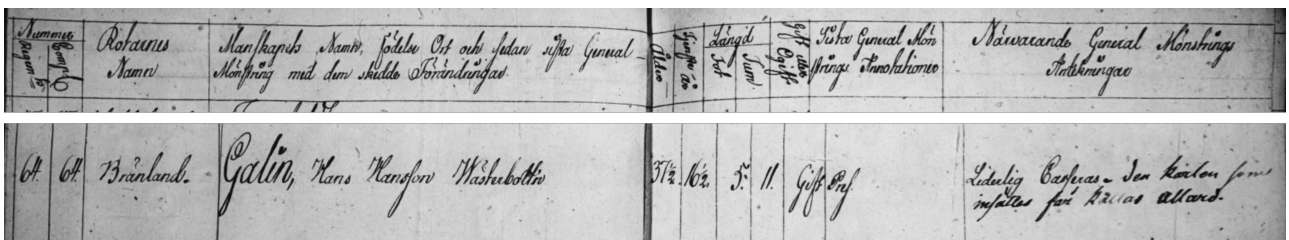 Nummer
Regem:ts
Comp:s
Rotarnes
Namn
Manskapets Namn, födelse Ort och sedan sista General
Mönstring med dem skedde Förändringar
Ålder
Tjenste år
Längd
Fot
Tum
Gift eller
Ogift
Sista General Mön
strings Annotationer
Närvarande General Mönstrings
Antekningar
64. 64. Bränland. Galin, Hans Hansson Wästerbottn 37½ 16½ 5. 11. Gift Pres.
Liderlig Casseras - den karlen som
insättes får kallas allard.